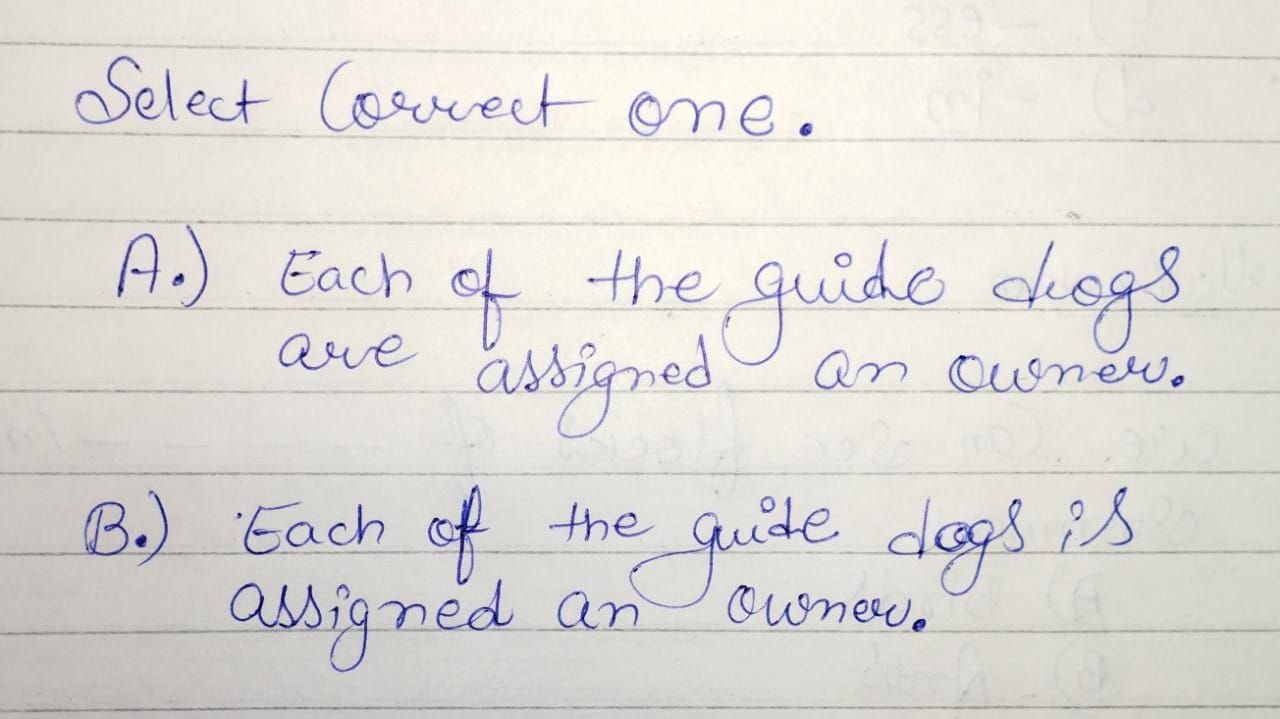 Select Correct one.
A.) Each of the guide dogs
are assigned an owner.
B.) Each of the guide dogs is
assigned an owner.